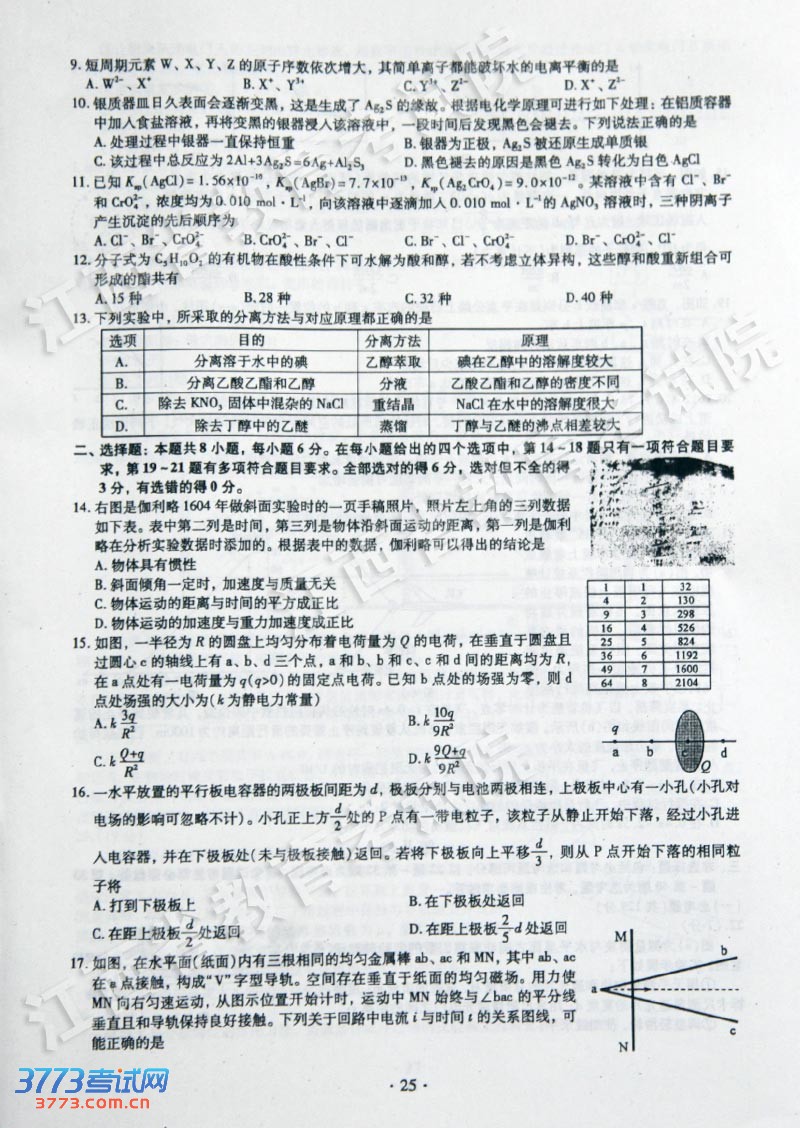 9. 短周期元素 W、X、Y、Z 的原子序数依次增大，其简单离子都能破坏水的电离平衡的是
A. W²⁻、X⁺ B. X⁺、Y³⁺ C. Y³⁺、Z²⁻ D. X⁺、Z²⁻
10. 银质器皿日久表面会逐渐变黑，这是生成了 Ag₂S 的缘故。根据电化学原理可进行如下处理：在铝质容器
中加入食盐溶液，再将变黑的银器浸入该溶液中，一段时间后发现黑色会褪去。下列说法正确的是
A. 处理过程中银器一直保持恒重 B. 银器为正极，Ag₂S 被还原生成单质银
C. 该过程中总反应为 2Al+3Ag₂S=6Ag+Al₂S₃ D. 黑色褪去的原因是黑色 Ag₂S 转化为白色 AgCl
11. 已知 Ksp(AgCl)=1.56×10⁻¹⁰，Ksp(AgBr)=7.7×10⁻¹³，Ksp(Ag₂CrO₄)=9.0×10⁻¹²。某溶液中含有 Cl⁻、Br⁻
和 CrO₄²⁻，浓度均为 0.010 mol·L⁻¹，向该溶液中逐滴加入 0.010 mol·L⁻¹ 的 AgNO₃ 溶液时，三种阴离子
产生沉淀的先后顺序为
A. Cl⁻、Br⁻、CrO₄²⁻ B. CrO₄²⁻、Br⁻、Cl⁻ C. Br⁻、Cl⁻、CrO₄²⁻ D. Br⁻、CrO₄²⁻、Cl⁻
12. 分子式为 C₅H₁₀O₂ 的有机物在酸性条件下可水解为酸和醇，若不考虑立体异构，这些醇和酸重新组合可
形成的酯共有
A. 15 种 B. 28 种 C. 32 种 D. 40 种
13. 下列实验中，所采取的分离方法与对应原理都正确的是
选项 目的 分离方法 原理
A. 分离溶于水中的碘 乙醇萃取 碘在乙醇中的溶解度较大
B. 分离乙酸乙酯和乙醇 分液 乙酸乙酯和乙醇的密度不同
C. 除去 KNO₃ 固体中混杂的 NaCl 重结晶 NaCl 在水中的溶解度很大
D. 除去丁醇中的乙醚 蒸馏 丁醇与乙醚的沸点相差较大
二、选择题：本题共 8 小题，每小题 6 分。在每小题给出的四个选项中，第 14～18 题只有一项符合题目要
求，第 19～21 题有多项符合题目要求。全部选对的得 6 分，选对但不全的得
3 分，有选错的得 0 分。
14. 右图是伽利略 1604 年做斜面实验时的一页手稿照片，照片左上角的三列数据
如下表。表中第二列是时间，第三列是物体沿斜面运动的距离，第一列是伽利
略在分析实验数据时添加的。根据表中的数据，伽利略可以得出的结论是
A. 物体具有惯性
B. 斜面倾角一定时，加速度与质量无关
C. 物体运动的距离与时间的平方成正比
D. 物体运动的加速度与重力加速度成正比
1 1 32
4 2 130
9 3 298
16 4 526
25 5 824
36 6 1192
49 7 1600
64 8 2104
15. 如图，一半径为 R 的圆盘上均匀分布着电荷量为 Q 的电荷，在垂直于圆盘且
过圆心 c 的轴线上有 a、b、d 三个点，a 和 b、b 和 c、c 和 d 间的距离均为 R，
在 a 点处有一电荷量为 q(q>0) 的固定点电荷。已知 b 点处的场强为零，则 d
点处场强的大小为(k 为静电力常量)
A. k 3q/R² B. k 10q/9R²
C. k Q+q/R² D. k 9Q+q/9R²
q
a b c d
Q
16. 一水平放置的平行板电容器的两极板间距为 d，极板分别与电池两极相连，上极板中心有一小孔(小孔对
电场的影响可忽略不计)。小孔正上方 d/2 处的 P 点有一带电粒子，该粒子从静止开始下落，经过小孔进
入电容器，并在下极板处(未与极板接触)返回。若将下极板向上平移 d/3，则从 P 点开始下落的相同粒
子将
A. 打到下极板上 B. 在下极板处返回
C. 在距上极板 d/2 处返回 D. 在距上极板 2/5 d 处返回
17. 如图，在水平面(纸面)内有三根相同的均匀金属棒 ab、ac 和 MN，其中 ab、ac
在 a 点接触，构成“V”字型导轨。空间存在垂直于纸面的均匀磁场。用力使
MN 向右匀速运动，从图示位置开始计时，运动中 MN 始终与∠bac 的平分线
垂直且和导轨保持良好接触。下列关于回路中电流 i 与时间 t 的关系图线，可
能正确的是
M
b
a
c
N
· 25 ·
江西省教育考试院
江西省教育考试院
江西省教育考试院
3773考试网
3773.com.cn